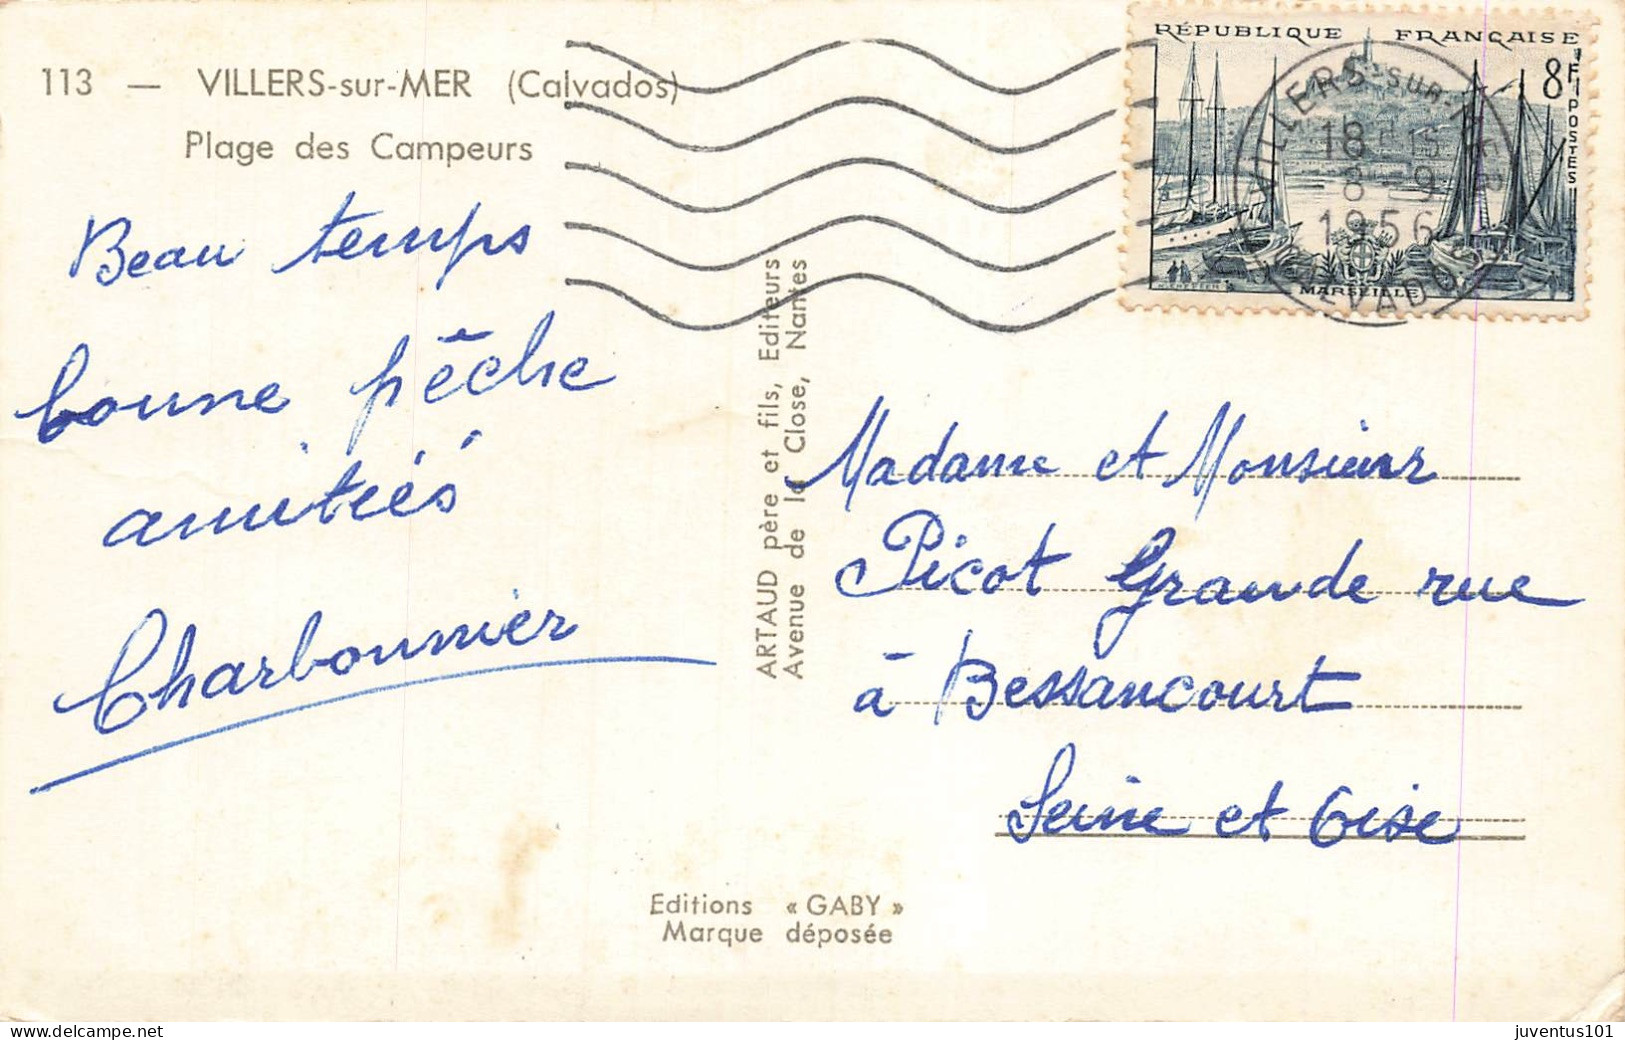 113 — VILLERS-sur-MER (Calvados)
Plage des Campeurs
Beau temps
bonne pêche
amitiés
Charbonnier
ARTAUD père et fils, Editeurs
Avenue de la Close, Nantes
Editions « GABY »
Marque déposée
RÉPUBLIQUE FRANÇAISE
8F
POSTES
MARSEILLE
VILLERS-SUR-MER
18 H 15
8 -9
1956
CALVADOS
Madame et Monsieur
Picot Grande rue
à Bessancourt
Seine et Oise
juventus101